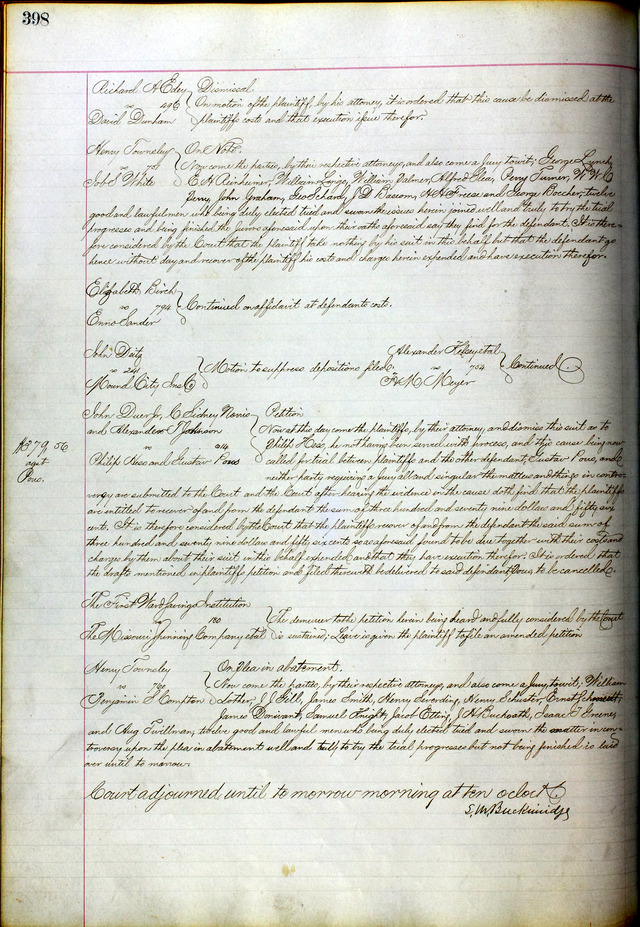 398
Richard A Edey Dismissal
496 On motion of the plaintiff, by his attorney, it is ordered that this cause be dismissed at the
David Dunham plaintiffs costs and that execution issue therefor.
Henry Townsley On Note.
vs Now come the parties, by their respective attorneys, and also come a Jury towit; George Lynch,
John White E. H. William Long, William Palmer, Alfred Clea, Perry Turner, W. W. C
Perry, John Graham, Geo Schard, J. D. Bascom, and George twelve
good and lawful men who being duly elected tried and sworn the issues herein joined well and truly to try the trial
progresses and being finished the jurors aforesaid upon their oaths aforesaid say they find for the defendant. It is there-
fore considered by the Court that the plaintiff take nothing by his suit in this behalf but that the defendant go
hence without day and recover of the plaintiff his costs and charges herein expended, and have execution therefor.
Elizabeth Birch
vs 794 Continued on affidavit at defendants costs.
Enno Sander
John
vs 241 Motion to suppress depositions filed.
Mound City Ins Co
Alexander et al
vs 754 Continued
Meyer
John Duer Jr, C Sidney Norris Petition
and Alexander T Johnson Now at this day come the plaintiffs, by their attorney, and dismiss this suit as to
vs 914 Philip Hess, he not having been served with process, and this cause being now
Philip Hess and Gustav Pous called for trial between plaintiffs and the other defendant, Gustav Pous, and
neither party requiring a jury all and singular the matters and things in contro-
$379,56
agst
Pous.
versy are submitted to the Court and the Court after hearing the evidence in the cause doth find that the plaintiffs
are entitled to recover of and from the defendant the sum of three hundred and seventy nine dollars and fifty six
cents. It is therefore considered by the Court that the plaintiffs recover of and from the defendant the said sum of
three hundred and seventy nine dollars and fifty six cents so as aforesaid found to be due together with their costs and
charges by them about their suit in this behalf expended, and that they have execution therefor. It is ordered that
the drafts mentioned in plaintiffs petition and filed therewith be delivered to said defendant Pous, to be cancelled.
The First Ward Savings Institution
vs 110 The demurrer to the petition herein being heard and fully considered by the Court
The Missouri Company et al is sustained; Leave is given the plaintiff to file an amended petition
Henry Townsley On Plea in abatement.
vs 790 Now come the parties, by their respective attorneys, and also come a Jury towit; William
Benjamin F Compton J. J. Gill, James Smith, Henry Henry Schuster, Ernst
James Donivant, Samuel Knight, Jacob Isaac T Greene,
and Aug Twillman, twelve good and lawful men who being duly elected tried and sworn the matter in con-
troversy upon the plea in abatement well and truly to try the trial progresses but not being finished is laid
over until to morrow.
Court adjourned until to morrow morning at ten oclock